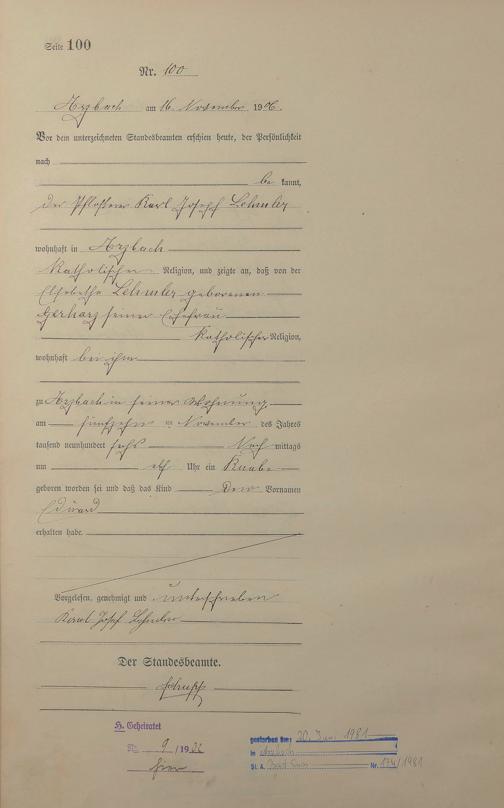 Seite 100
Nr. 100
Arzbach am 16 November 1906.
Vor dem unterzeichneten Standesbeamten erschien heute, der Persönlichkeit
nach
be kannt,
der Pflasterer Karl Josef Lehmler
wohnhaft in Arzbach
katholischer Religion, und zeigte an, daß von der
Elisabetha Lehmler geborenen
Gerharz seiner Ehefrau
katholischer Religion,
wohnhaft bei ihm
zu Arzbach in seiner Wohnung
am fünfzehn ten November des Jahres
tausend neunhundert sechs Nach mittags
um elf Uhr ein Knabe
geboren worden sei und daß das Kind den Vornamen
Eduard
erhalten habe.
Vorgelesen, genehmigt und unterschrieben
Karl Josef Lehmler
Der Standesbeamte.
H. Geheiratet
Nr. 9 / 19
hier
gestorben am: 20. Juni 1981
in Arzbach
St. A. Bad Ems Nr. 174/1981